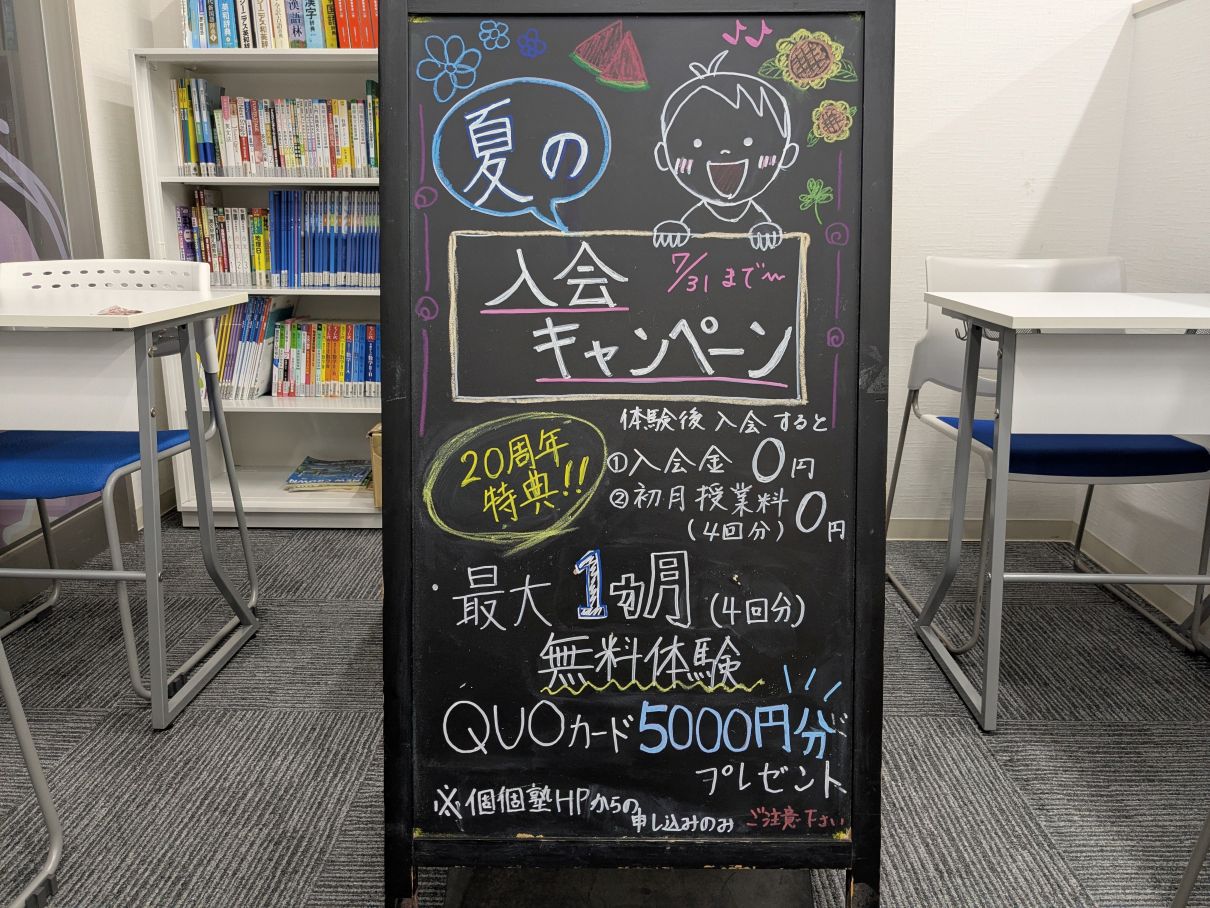 夏の
入会
7/31まで〜
キャンペーン
20周年
特典!!
体験後入会すると
①入会金 0円
②初月授業料 0円
(4回分)
最大1ヵ月(4回分)
無料体験
QUOカード5000円分
プレゼント
※個個塾HPからの
申し込みのみ
ご注意下さい